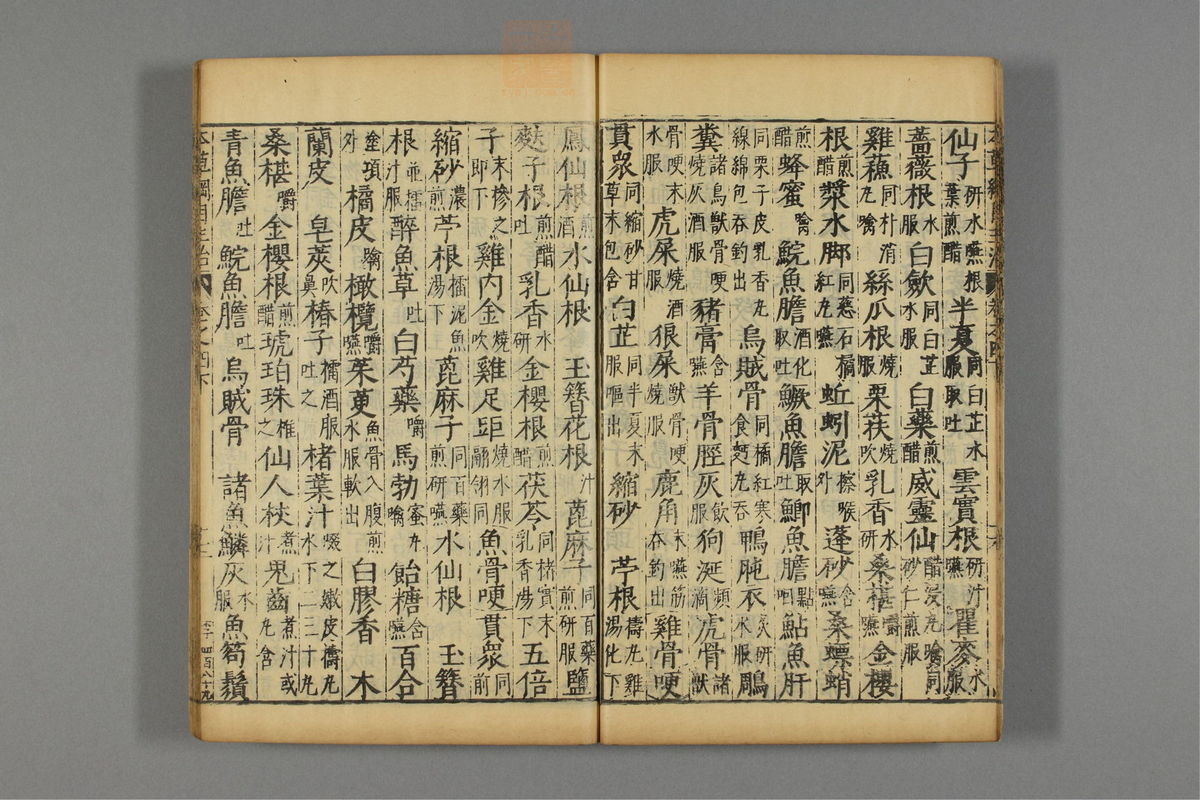 仙子研水嚥根葉煎醋半夏同白芷水服取吐雲實根研汁嚥瞿麥水服
薔薇根水服白歛同白芷水服白藥煎醋威靈仙醋浸丸噙同砂仁煎服
雞蘓同朴消丸噙絲瓜根燒服栗荴燒吹乳香水研桑椹嚼嚥金櫻
根煎醋漿水脚同慈石橘紅丸嚥蚯蚓泥擦喉外蓬砂含嚥桑螵蛸
煎醋蜂蜜噙鯇魚膽酒化取吐鱖魚膽取吐鯽魚膽點咽鮎魚肝
同栗子皮乳香丸線綿包吞釣出烏賊骨同橘紅寒食麪丸吞鴨肫衣炙研水服鵰
糞諸鳥獸骨哽燒灰酒服豬膏含嚥羊骨脛灰飲服狗涎頻滴虎骨諸獸
骨哽末水服虎屎燒酒服狼屎獸骨哽燒服鹿角末嚥筋吞釣出雞骨哽
貫衆同縮砂甘草末包含白芷同半夏末服嘔出縮砂苧根擣丸雞湯化下
鳳仙根煎酒水仙根玉簪花根汁蓖麻子同百藥煎研服鹽
麩子根煎醋吐乳香水研金櫻根煎醋茯苓同楮實末乳香湯下五倍
子末摻之即下雞內金燒吹雞足距燒水服翮翎同魚骨哽貫衆同前
縮砂濃煎苧根擂泥魚湯下蓖麻子同百藥煎研嚥水仙根玉簪
根並擂汁服醉魚草吐白芍藥嚼馬勃蜜丸噙飴糖丸嚥百合
塗項外橘皮噙橄欖嚼嚥茱萸魚骨入腹煎水服軟出白膠香木
蘭皮皂莢吹鼻椿子擂酒服吐之楮葉汁啜之嫩皮擣丸水下二三十丸
桑椹嚼金櫻根煎醋琥珀珠推之仙人杖煮汁鬼齒煮汁或丸含
青魚膽吐鯇魚膽吐烏賊骨諸魚鱗灰水服魚笱鬚
本草綱目主治 卷之四下
四百八十九